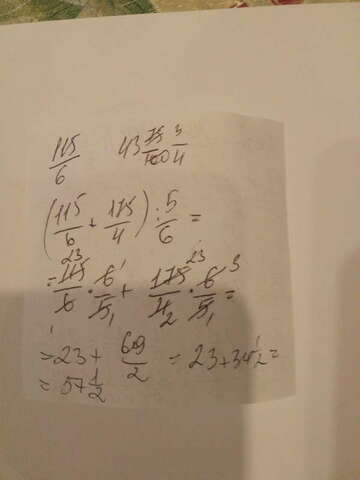 115/6 43 75/100 3/4
(115/6 + 115/4) : 5/6 =
= 115/6 · 6/5 + 115/4 · 6/5 =
= 23 + 69/2 = 23 + 34 1/2 =
= 57 1/2